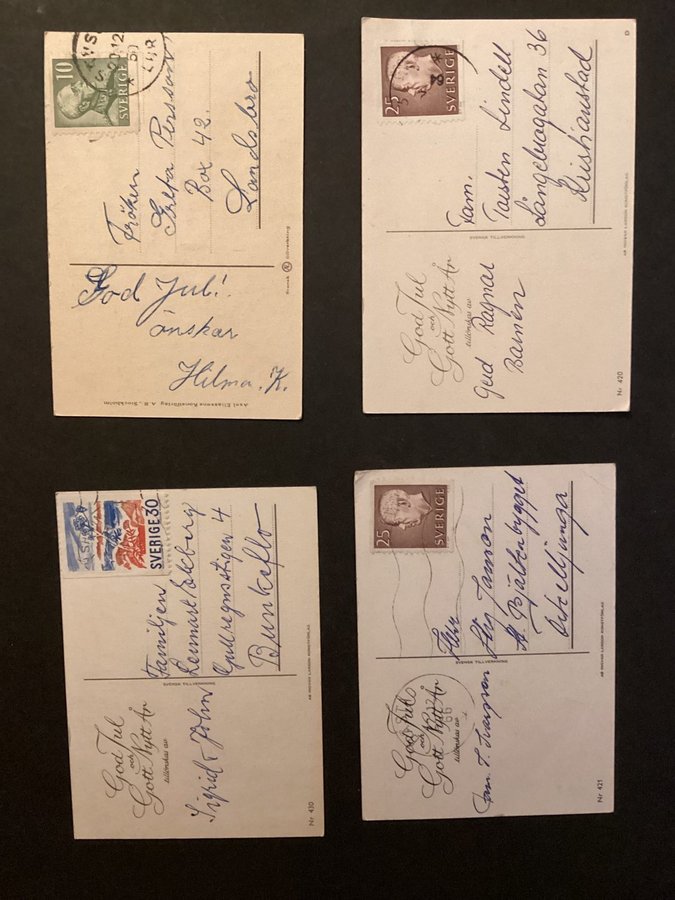 God Jul!
önskar
Hilma. K.
Axel Eliassons Konstförlag A. B., Stockholm
Svensk
tillverkning
10
SVERIGE
Fröken
Greta Persson
Box 42.
Landsbro
God Jul
och
Gott Nytt År
tillönskas av
Ragnar
Barnen
Nr 420
SVENSK TILLVERKNING
25
SVERIGE
Fam.
Torsten Lindell
Långebrogatan 36
Kristianstad
AB MELVIN LARSON KONSTFÖRLAG
D
God Jul
och
Gott Nytt År
tillönskas av
Ingrid o John
Nr 430
SVENSK TILLVERKNING
SVERIGE 30
Familjen
Lennart Ekberg
Gullregnsstigen 4
Bunkeflo
God Jul
och
Gott Nytt År
tillönskas av
Fam.
Nr 421
SVENSK TILLVERKNING
25
SVERIGE
Herr
Stig Jansson
Örkelljunga